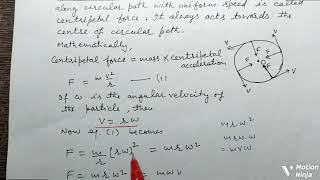 along circular path with uniform speed is called
centripetal force. It always acts towards the
centre of circular path.
Mathematically,
Centripetal force = mass × centripetal
acceleration
F = m v²/r —(1)
If ω is the angular velocity of
the particle, then
V = rω
Now eq. (1) becomes
F = m/r [rω]² = mrω²
F = mrω² = mωv
V
V
F
F
F
F
V
V
mrω²
mrω.ω
= mvω
Motion
Ninja